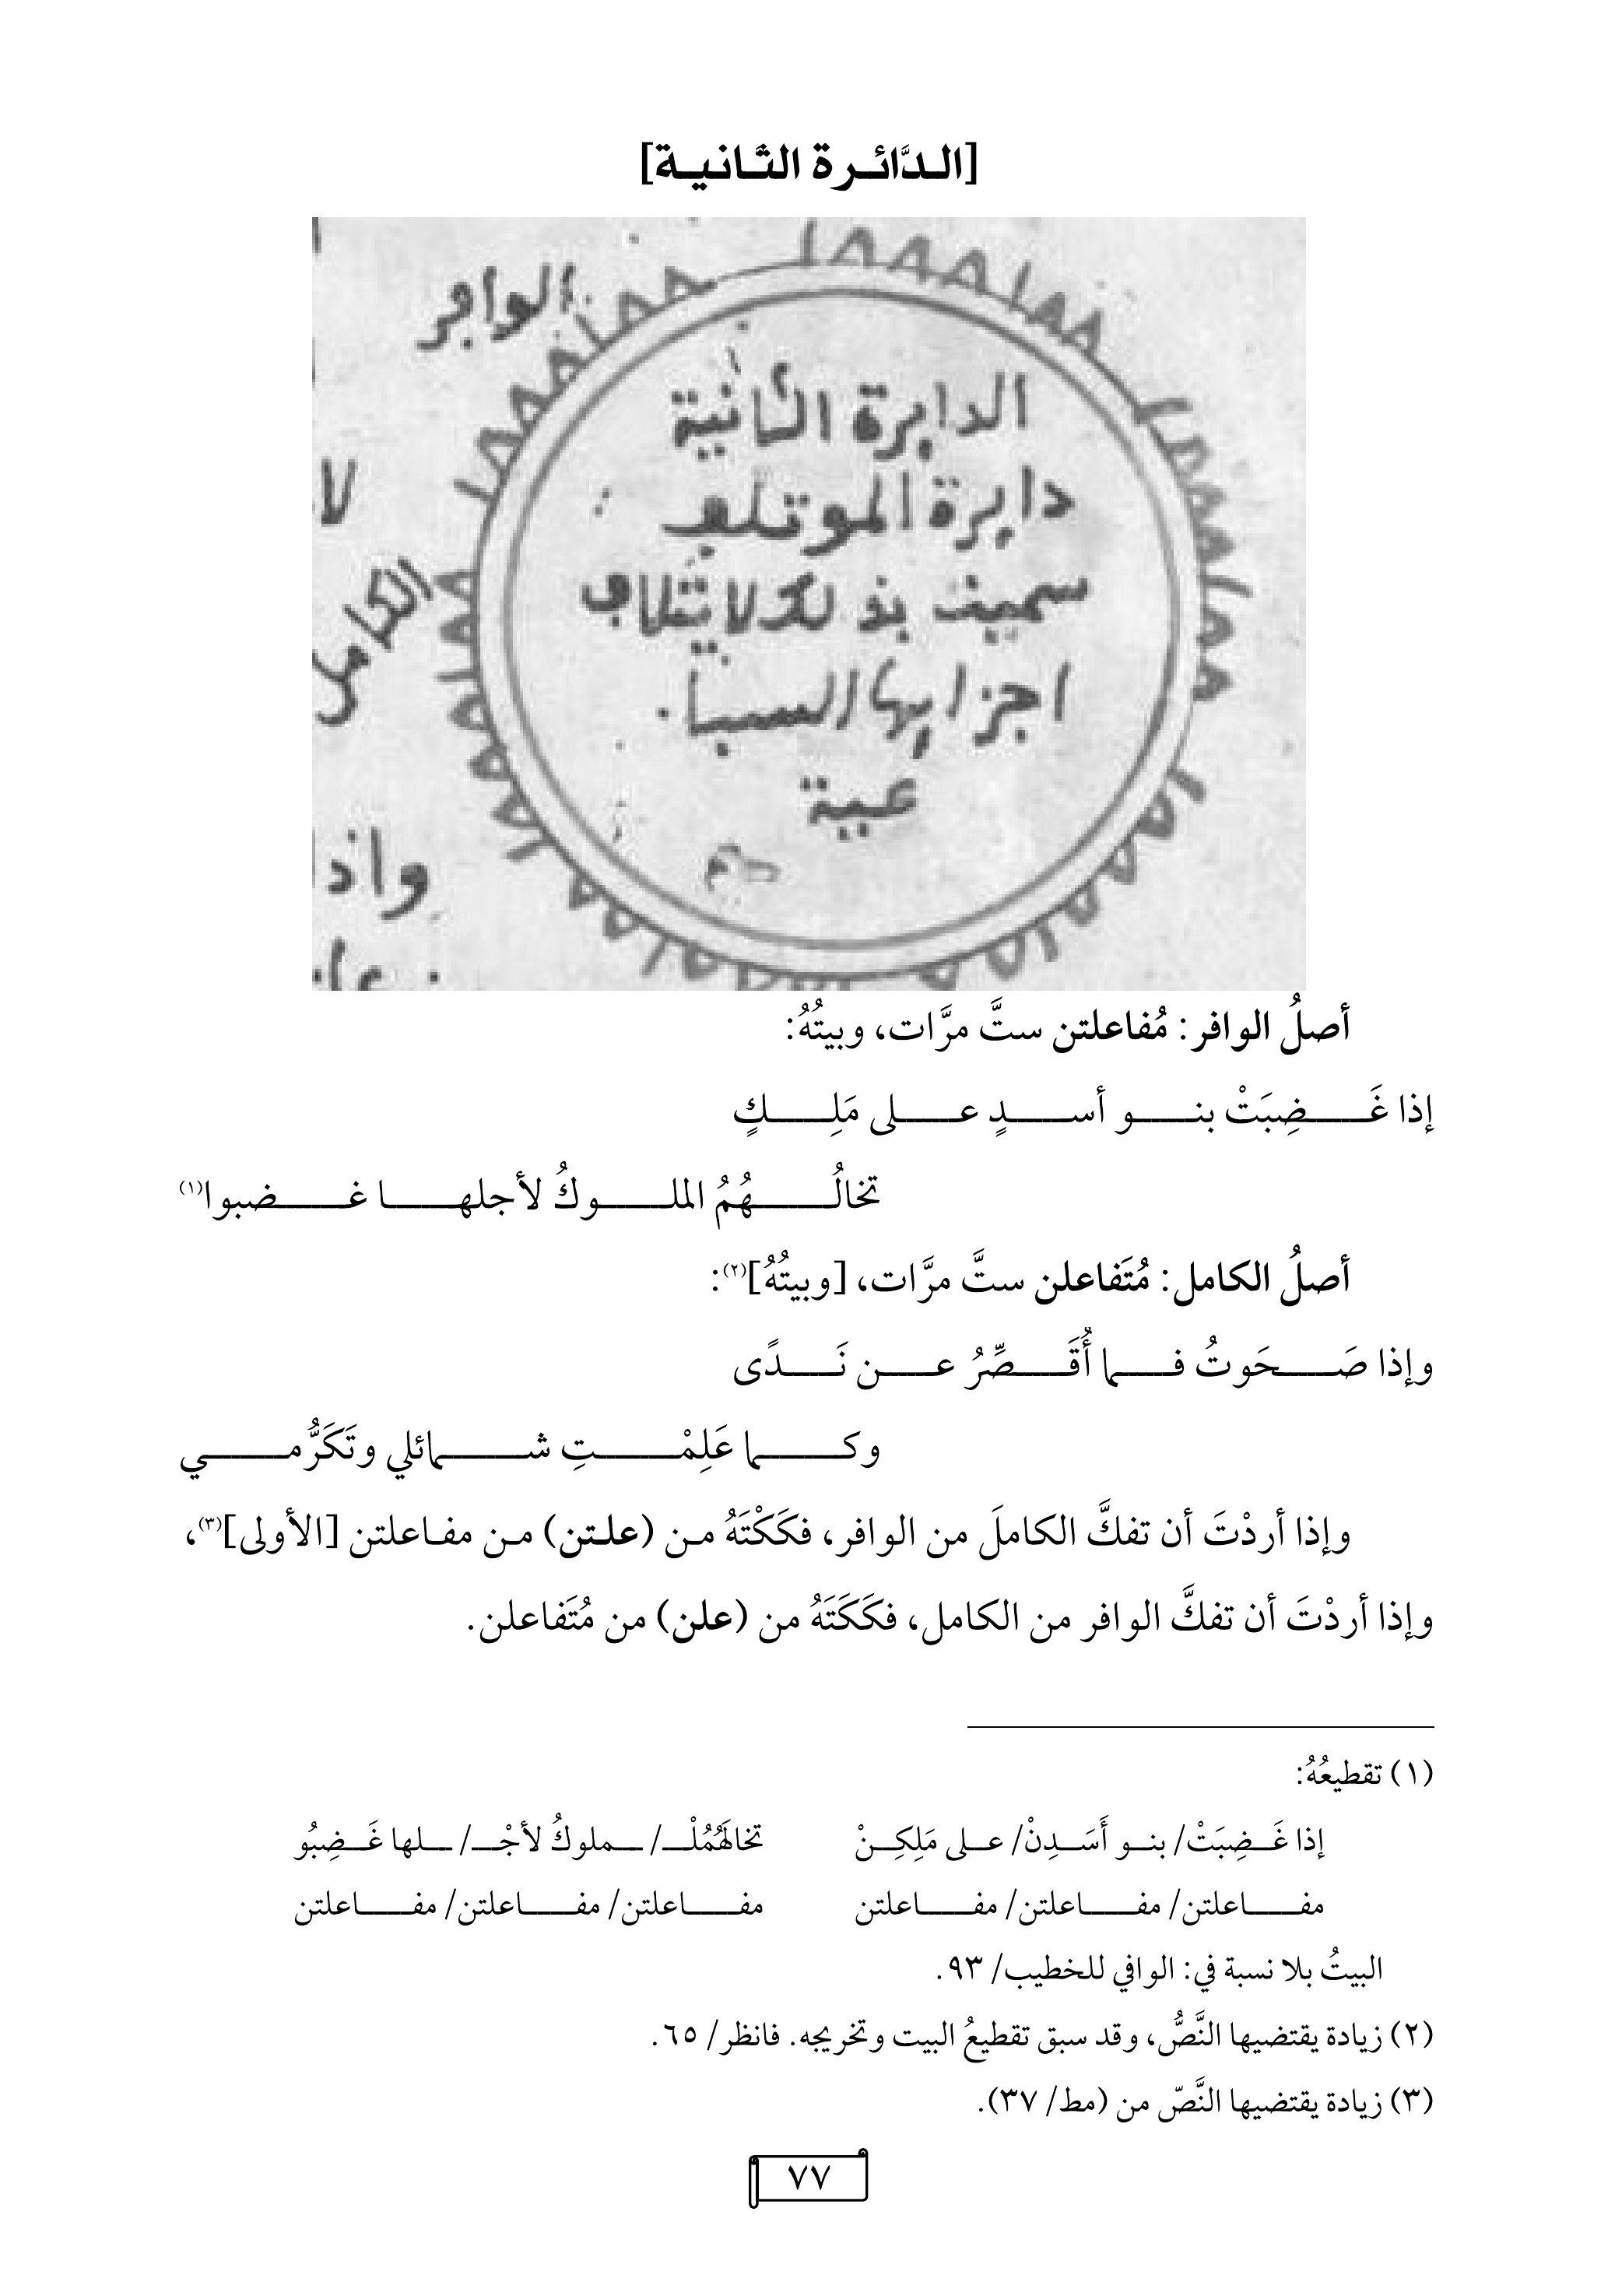 [الدَّائرة الثَّانية]
الوافر
الدايرة الثانية
دايرة الموتلف
سميت بذلك لايتلاف
اجزايها السبا
عية
الكامل
واذا
أصلُ الوافر: مُفاعلتن ستَّ مرَّات، وبيتُهُ:
إذا غَضِبَتْ بنو أسدٍ على مَلِكٍ
تخالُهُمُ الملوكُ لأجلها غضبوا(١)
أصلُ الكامل: مُتَفاعلن ستَّ مرَّات، [وبيتُهُ](٢):
وإذا صَحَوتُ فما أُقَصِّرُ عن نَدًى
وكما عَلِمْتِ شمائلي وتَكَرُّمي
وإذا أردْتَ أن تفكَّ الكاملَ من الوافر، فكَكْتَهُ من (علتن) من مفاعلتن [الأولى](٣)،
وإذا أردْتَ أن تفكَّ الوافر من الكامل، فكَكَتَهُ من (علن) من مُتَفاعلن.
(١) تقطيعُهُ:
إذا غَضِبَتْ/ بنو أَسَدِنْ/ على مَلِكِنْ تخالهُمُلْـ/ ـملوكُ لأجْـ/ ـلها غَضِبُو
مفاعلتن/ مفاعلتن/ مفاعلتن مفاعلتن/ مفاعلتن/ مفاعلتن
البيتُ بلا نسبة في: الوافي للخطيب/ ٩٣.
(٢) زيادة يقتضيها النَّصُّ، وقد سبق تقطيعُ البيت وتخريجه. فانظر/ ٦٥.
(٣) زيادة يقتضيها النَّصّ من (مط/ ٣٧).
٧٧